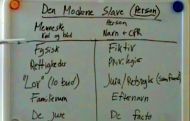 Den Moderne Slave (Person)
Menneske Person
Kød og blod Navn + CPR
Fysisk Fiktiv
Rettigheder Privilegie
"Lov" (10 bud) Jura/Retsregle
Familienavn Efternavn
De jure De facto